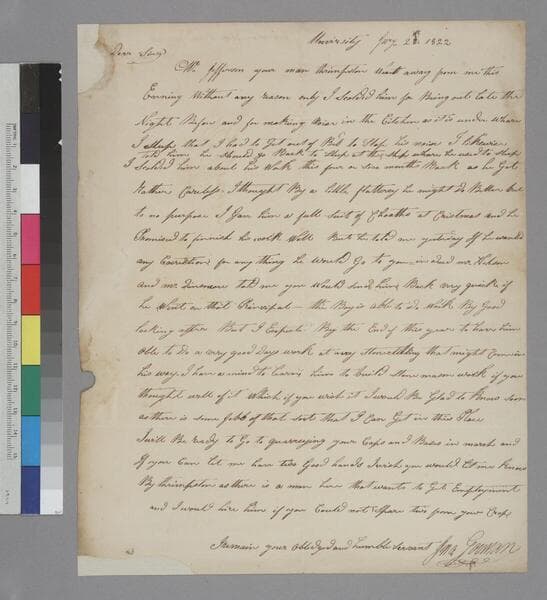 University Jany 2d 1822
Dear Sir
Mr. Jefferson your man Thrimpston Went away from me this
Evening Without any reason only I Scolded him for Being out late the
Night Before and for making Noise in the Citchen as it is under Where
I sleep that I had to Get out of Bed to Stop his noise I Likewise
told him he Should go Back to Sleep at the Shop where he used to Sleep
I Scolded him about his Work this four or five month Back as he Got
Rather Careless I thought By a little flattery he might do Better but
to no purpose I Gave him a full Suit of Cloathes at Cristmas and he
Promised to finish his work Well But he told me yesterday if he would
any for any thing he Would Go to you and mr.
and mr. Dinsmore told me you Would Send him Back very quick if
he Went on that Principal the Boy is able to do work By Good
looking after But I Expect By the End of this year to have him
able to do a very good days work at any Stonecutting that might Come in
his way. I have a mind to Learn him to Build Stone mason work if you
thought well of it Which if you wish it I would Be Glad to know soon
as there is some jobb of that sort that I Can Get in this Place
I will Be ready to Go to quarreying your Caps and Bases in march and
If you Can let me have two Good hands I wish you would let me know
By thrimpston as there is a man here that wants to Get Employment
and I would hire him if you Could not Spare two from your Crop
I remain your obledged and humble servant Jno Gorman